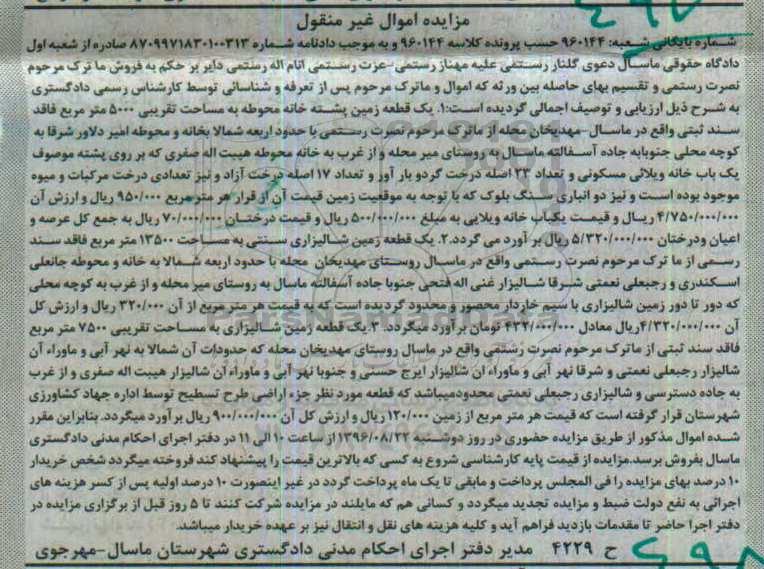 مزایده اموال غیر منقول
شماره بایگانی شعبه: ۹۶۰۱۴۴ حسب پرونده کلاسه ۹۶۰۱۴۴ و به موجب دادنامه شماره ۸۷۰۹۹۷۱۸۳۰۱۰۰۳۱۳ صادره از شعبه اول
دادگاه حقوقی ماسال دعوی گلنار رستمی علیه مهناز رستمی-عزت رستمی انام اله رستمی دایر بر حکم به فروش ما ترک مرحوم
نصرت رستمی و تقسیم بهای حاصله بین ورثه که اموال و ماترک مرحوم پس از تعرفه و شناسائی توسط کارشناس رسمی دادگستری
به شرح ذیل ارزیابی و توصیف اجمالی گردیده است:۱. یک قطعه زمین پشته خانه محوطه به مساحت تقریبی ۵۰۰۰ متر مربع فاقد
سند ثبتی واقع در ماسال-مهدیخان محله از ماترک مرحوم نصرت رستمی با حدود اربعه شمالا بخانه و محوطه امیر دلاور شرقا به
کوچه محلی جنوبابه جاده آسفالته ماسال به روستای میر محله و از غرب به خانه محوطه هیبت اله صفری که بر روی پشته موصوف
یک باب خانه ویلائی مسکونی و تعداد ۳۳ اصله درخت گردو بار آور و تعداد ۱۷ اصله درخت آزاد و نیز تعدادی درخت مرکبات و میوه
موجود بوده است و نیز دو انباری سنگ بلوک که با توجه به موقعیت زمین قیمت آن از قرار هر متر مربع ۹۵۰/۰۰۰ ریال و ارزش آن
۴/۷۵۰/۰۰۰/۰۰۰ ریال و قیمت یکباب خانه ویلایی به مبلغ ۵۰۰/۰۰۰/۰۰۰ ریال و قیمت درختان ۷۰/۰۰۰/۰۰۰ ریال به جمع کل عرصه و
اعیان ودرختان ۵/۳۲۰/۰۰۰/۰۰۰ ریال بر آورد می گردد.۲. یک قطعه زمین شالیزاری سنتی به مساحت ۱۳۵۰۰ متر مربع فاقد سند
رسمی از ما ترک مرحوم نصرت رستمی واقع در ماسال روستای مهدیخان محله با حدود اربعه شمالا به خانه و محوطه جانعلی
اسکندری و رجبعلی نعمتی شرقا شالیزار غنی اله فتحی جنوبا جاده آسفالته ماسال به روستای میر محله و از غرب به کوچه محلی
که دور تا دور زمین شالیزاری با سیم خاردار محصور و محدود گردیده است که به قیمت هر متر مربع از آن ۳۲۰/۰۰۰ ریال و ارزش کل
آن ۴/۳۲۰/۰۰۰/۰۰۰ریال معادل ۴۳۲/۰۰۰/۰۰۰ تومان برآورد میگردد. ۳.یک قطعه زمین شالیزاری به مساحت تقریبی ۷۵۰۰ متر مربع
فاقد سند ثبتی از ماترک مرحوم نصرت رستمی واقع در ماسال روستای مهدیخان محله که حدودات آن شمالا به نهر آبی و ماوراء آن
شالیزار رجبعلی نعمتی و شرقا نهر آبی و ماوراء ان شالیزار ایرج حسنی و جنوبا نهر آبی و ماوراء آن شالیزار هیبت اله صفری و از غرب
به جاده دسترسی و شالیزاری رجبعلی نعمتی محدودمیباشد که قطعه مورد نظر جزء اراضی طرح تسطیح توسط اداره جهاد کشاورزی
شهرستان قرار گرفته است که قیمت هر متر مربع از زمین ۱۲۰/۰۰۰ ریال و ارزش کل آن ۹۰۰/۰۰۰/۰۰۰ ریال بر آورد میگردد. بنابراین مقرر
شده اموال مذکور از طریق مزایده حضوری در روز دوشنبه ۱۳۹۶/۰۸/۲۲ از ساعت ۱۰ الی ۱۱ در دفتر اجرای احکام مدنی دادگستری
ماسال بفروش برسد.مزایده از قیمت پایه کارشناسی شروع به کسی که بالاترین قیمت را پیشنهاد کند فروخته میگردد شخص خریدار
۱۰ درصد بهای مزایده را فی المجلس پرداخت و مابقی تا یک ماه پرداخت گردد در غیر اینصورت ۱۰ درصد اولیه پس از کسر هزینه های
اجرائی به نفع دولت ضبط و مزایده تجدید میگردد و کسانی هم که مایلند در مزایده شرکت کنند تا ۵ روز قبل از برگزاری مزایده در
دفتر اجرا حاضر تا مقدمات بازدید فراهم آید و کلیه هزینه های نقل و انتقال نیز بر عهده خریدار میباشد.
ح ۴۲۲۹ مدیر دفتر اجرای احکام مدنی دادگستری شهرستان ماسال-مهرجوی